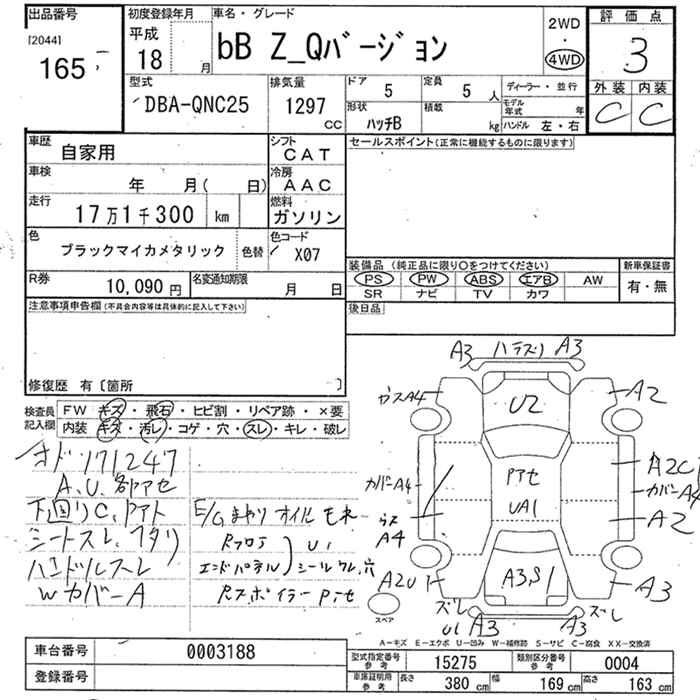 出品番号
[2044]
165
初度登録年月
平成
18
月
車名・グレード
bB Z_Qバージョン
2WD
・
4WD
評価点
3
外装 内装
C C
型式
DBA-QNC25
排気量
1297
CC
ドア
5
定員
5 人
形状
ハッチB
積載
kg
ディーラー・並行
モデル年式 年
ハンドル 左・右
車歴
自家用
シフト
CAT
車検
年 月( 日)
冷房
AAC
走行
17万1千300 km
燃料
ガソリン
色
ブラックマイカメタリック
色替
色コード
X07
R券
10,090 円
名変通知期限
月 日
セールスポイント(正常に機能するものに限ります)
装備品 (純正品に限り○をつけてください)
PS PW ABS エアB AW
SR ナビ TV カワ
新車保証書
有・無
後日品
注意事項申告欄(不具合内容等は具体的に記入して下さい)
修復歴 有〔箇所 〕
検査員
記入欄
FW キズ・飛石・ヒビ割・リペア跡・×要
内装 キズ・汚レ・コゲ・穴・スレ・キレ・破レ
オド171247
A.U.各部アセ
下回りC.アト
シートスレ.
ハンドルスレ
WカバーA
E/G オイルモレ
Rフロア U1
エンドパネル シールワレ.穴
Rスポイラーアセ
A3 A3
ガラスA4
U2
A2
カバーA4
アセ
UA1
A2C
カバーA4
A4
A2
A2U1
A3S1
A3
ズレ
U1 A3
A3
ズレ
スペア
A-キズ E-エクボ U-凹み W-補修跡 S-サビ C-腐食 XX-交換済
車台番号
0003188
登録番号
型式指定番号
参考
15275
類別区分番号
参考
0004
車庫証明用
参考
長さ 380 cm
幅 169 cm
高さ 163 cm